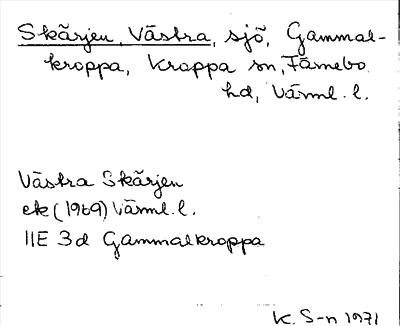 Skärjen, Västra, sjö, Gammal-
kroppa, Kroppa sn, Färnebo
hd, Värml. l.
Västra Skärjen
ek (1969) Värml. l.
11E 3d Gammalkroppa
K. S-n 1971